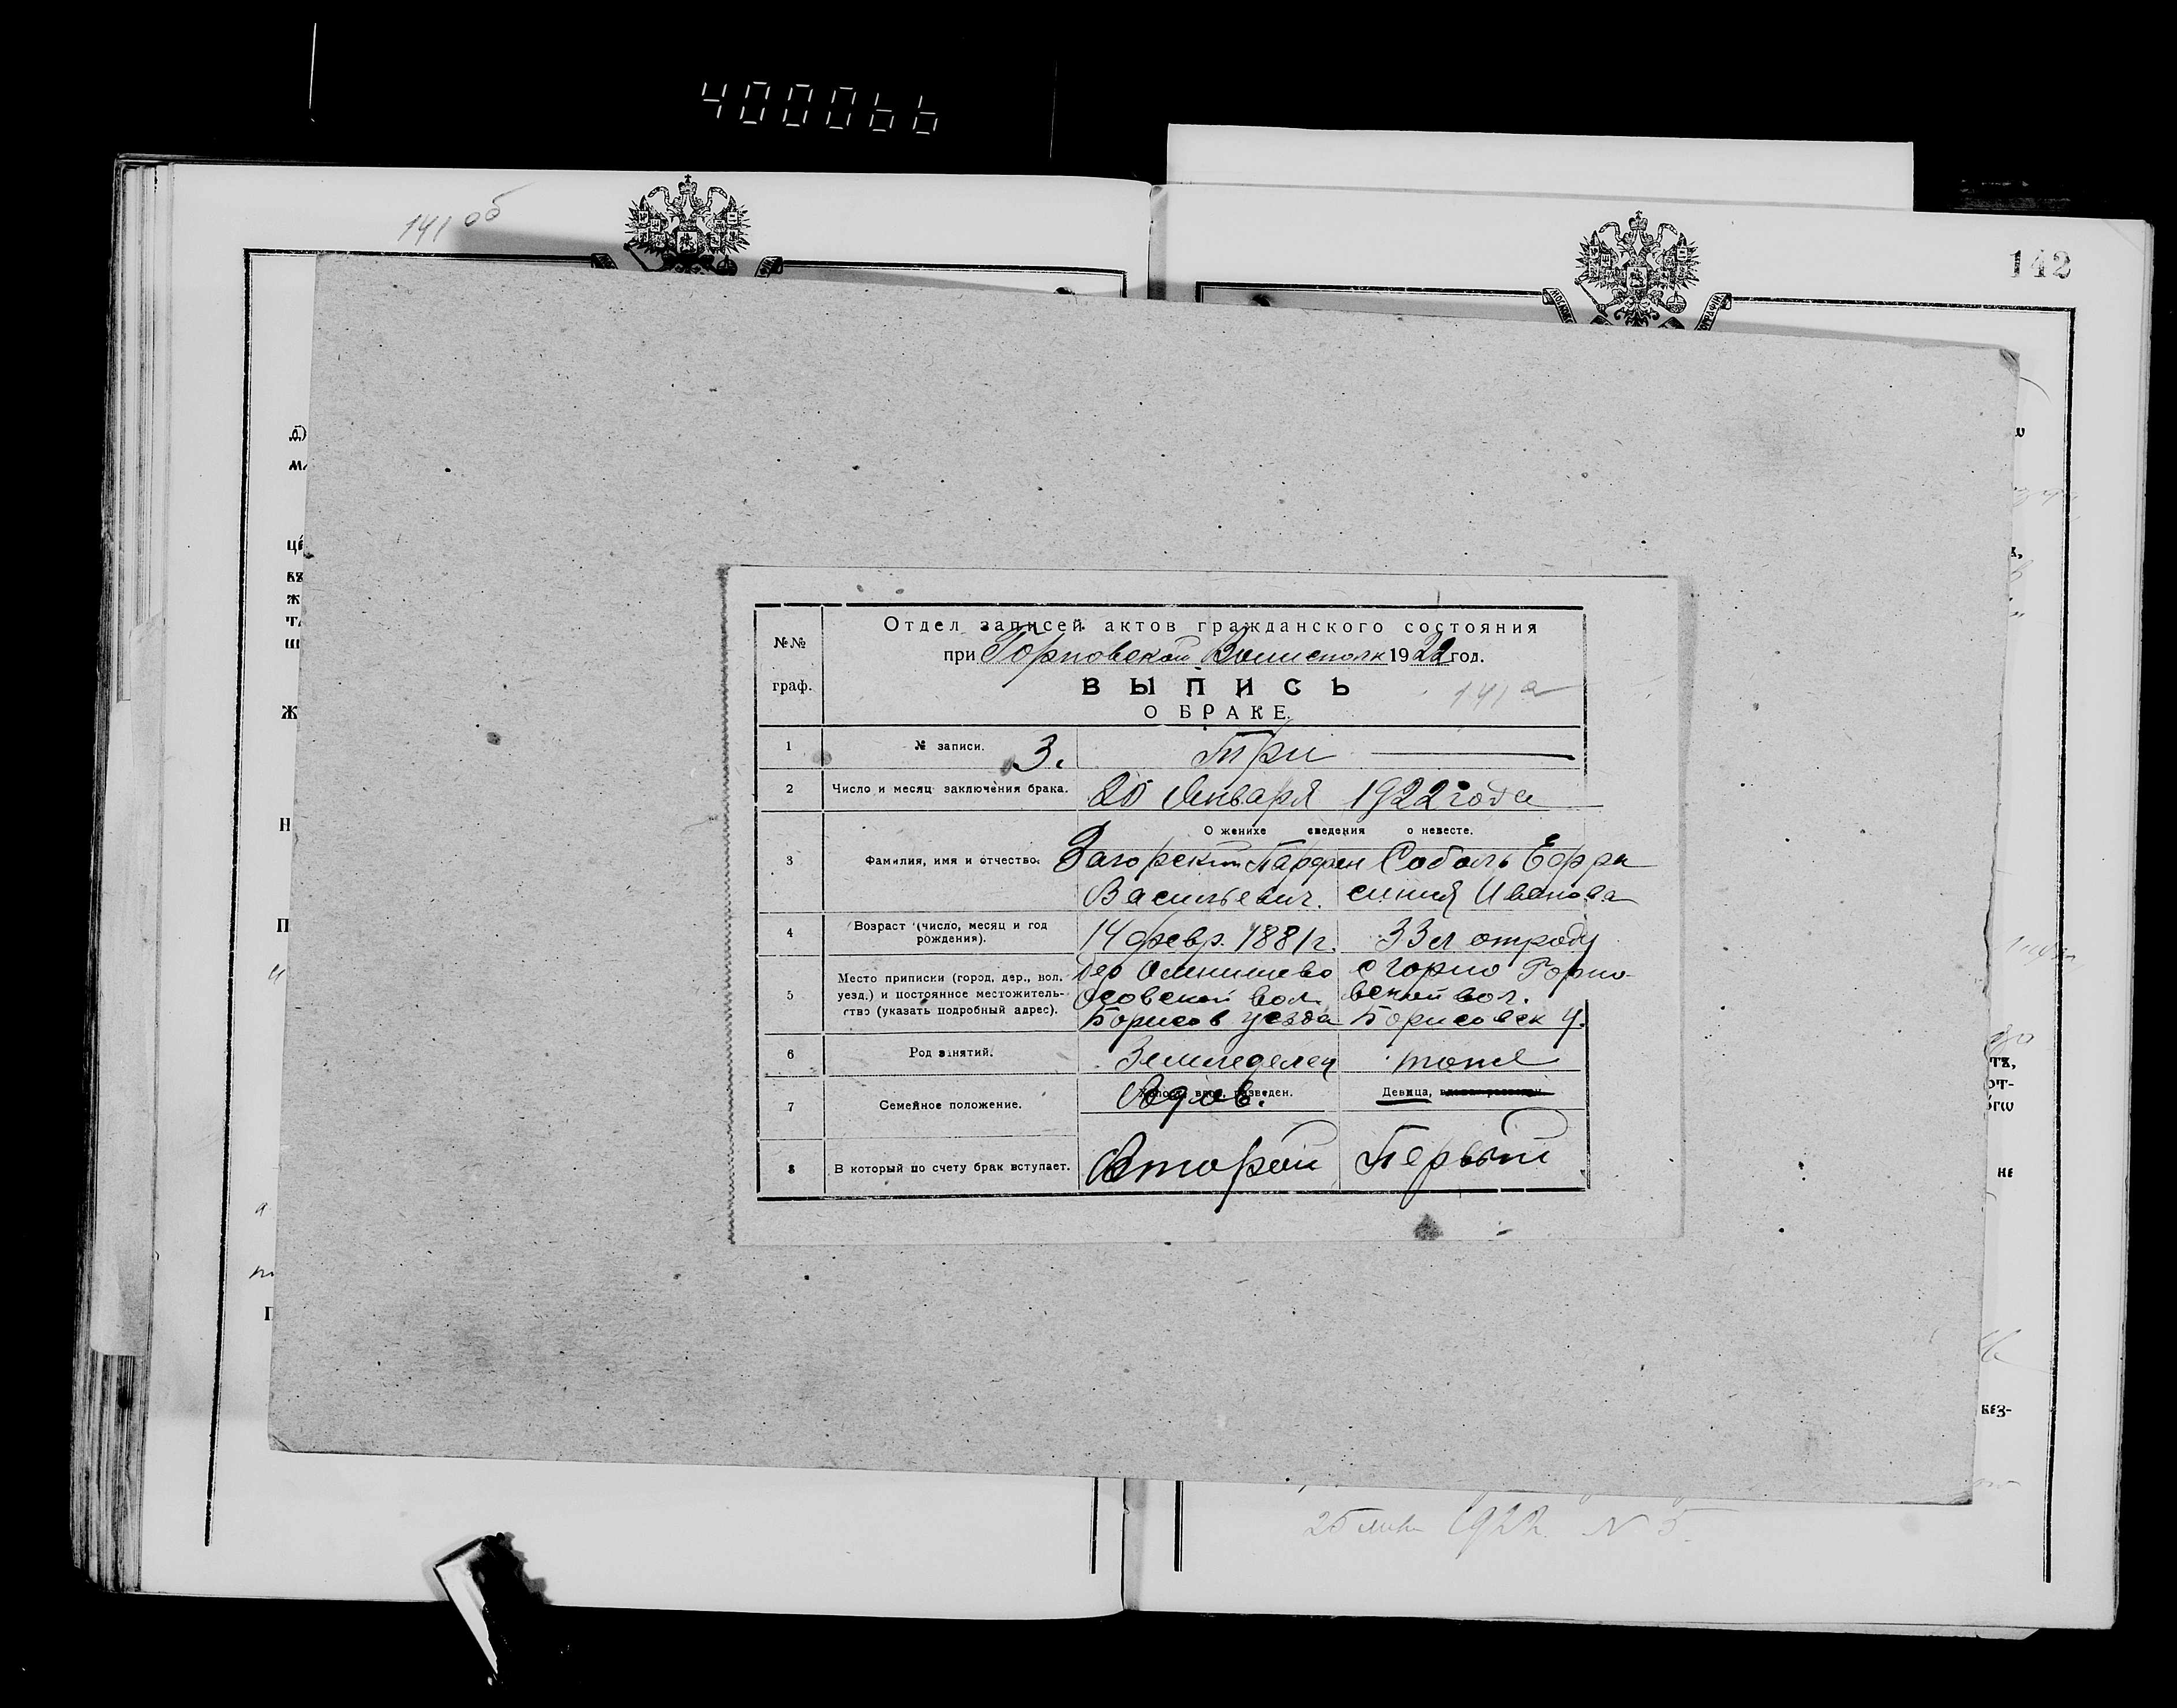 400066
141 об
142
141 а
№№ граф.
Отдел записей актов гражданского состояния
при Горновской Волисполк 1922 год.
ВЫПИСЬ
О БРАКЕ.
1 № записи. 3. Три
2 Число и месяц заключения брака. 20 Января 1922 года
О женихе сведения о невесте.
3 Фамилия, имя и отчество. Загорский Парфен Соболь Ефро
Васильевич. синия Иванова
4 Возраст (число, месяц и год рождения). 14 февр. 1881 г. 33 л отроду
5 Место приписки (город, дер., вол. уезд.) и постоянное местожительство (указать подробный адрес).
дер с Горно Горно-
вол. вской вол.
Борисов уезда Борисовск у.
6 Род занятий. Земледелец тоже
7 Семейное положение. Вдов. разведен. Девица,
8 В который по счету брак вступает. Второй Первый
1922. N 5.